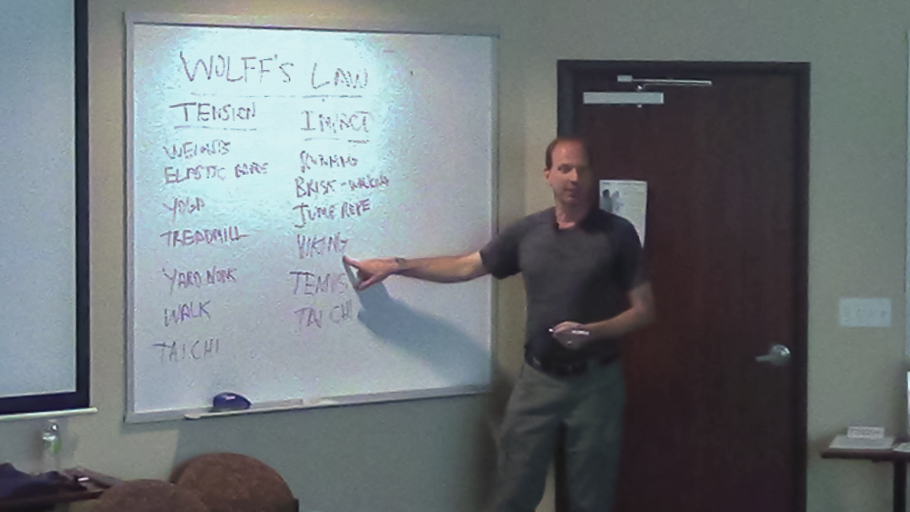 WOLFF'S LAW
TENSION
WEIGHTS
ELASTIC BAND
YOGA
TREADMILL
YARD WORK
WALK
TAI CHI
IMPACT
RUNNING
BRISK-WALKING
JUMP ROPE
HIKING
TENNIS
TAI CHI